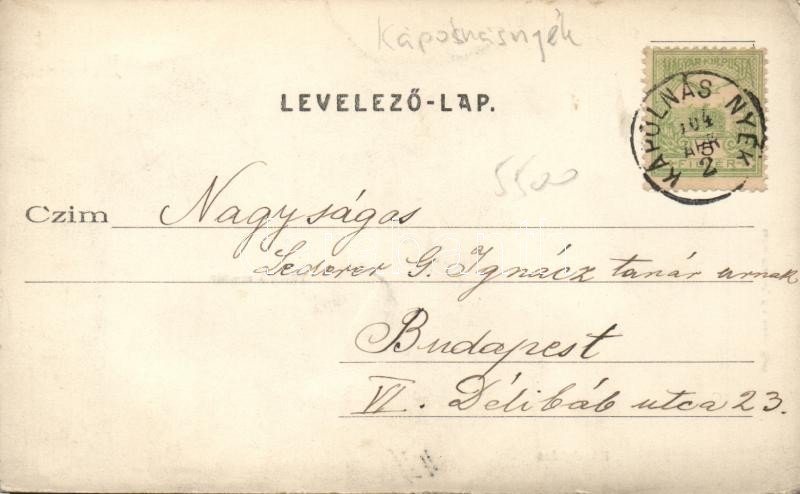 Kápolnásnyék
MAGYAR KIR. POSTA
KÁPOLNÁS NYÉK
LEVELEZŐ-LAP.
904
ÁPR
2
FILLÉR
5500
Czim Nagyságos
Lederer G. Ignácz tanár urnak
Budapest
VI. Délibáb utca 23.